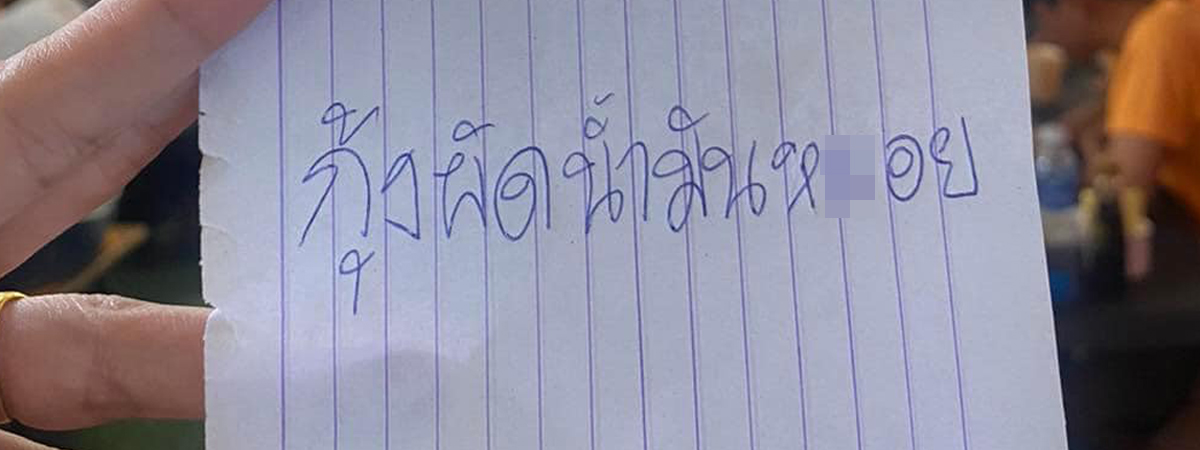 กุ้งผัดน้ำมันห อย